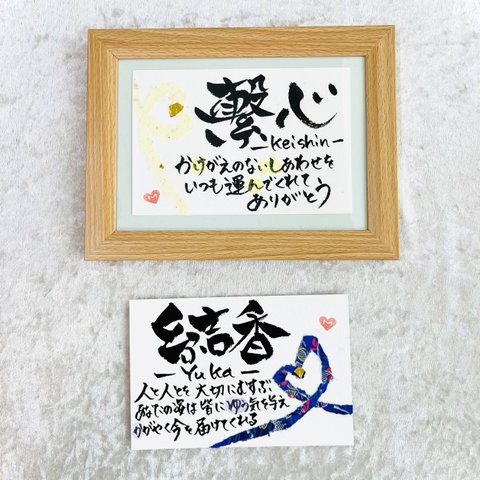 繋心
-keishin-
かけがえのないしあわせを
いつも運んでくれて
ありがとう
結香
-Yuka-
人と人とを大切にむすぶ
あなたの姿は皆にゆう気を与え
かがやく今を届けてくれる